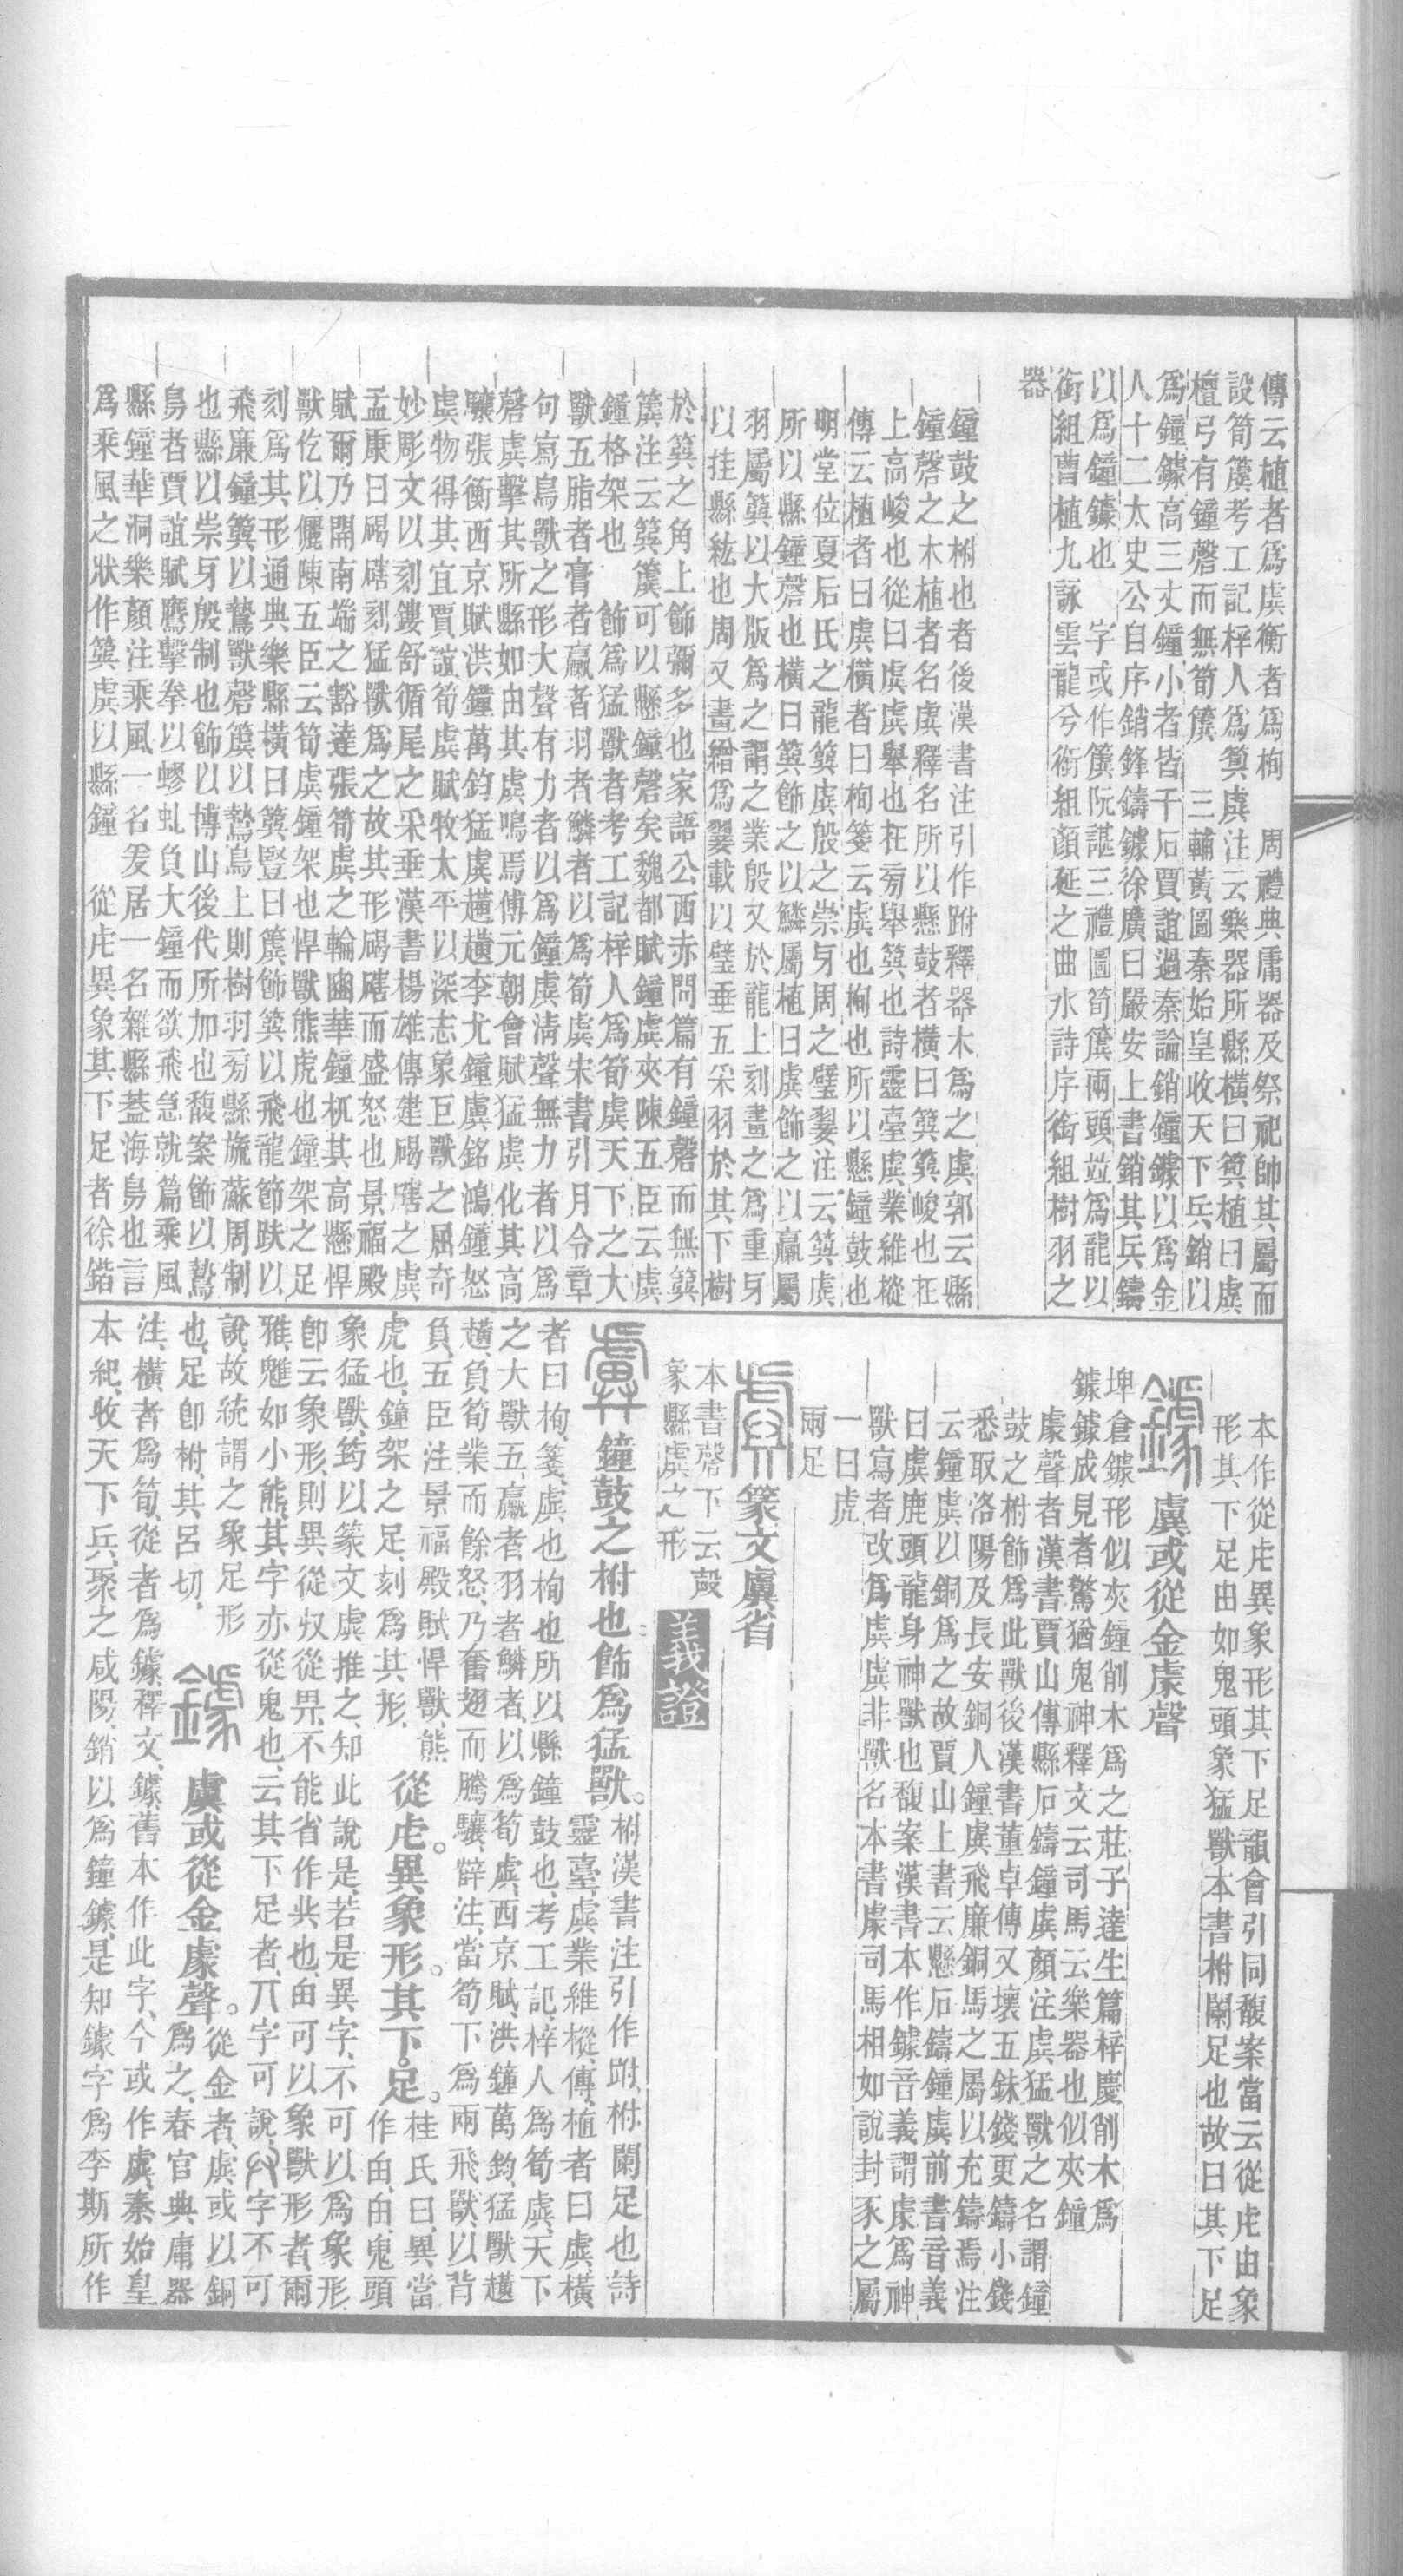 傳云植者爲虡衡者爲栒　周禮典庸器及祭祀帥其屬而
設筍簴考工記梓人爲簨虡注云樂器所縣橫曰簨植曰虡
檀弓有鐘磬而無筍簴　三輔黃圖秦始皇收天下兵銷以
爲鐘鐻高三丈鐘小者皆千石賈誼過秦論銷鐘鐻以爲金
人十二太史公自序銷鋒鑄鐻徐廣曰嚴安上書銷其兵鑄
以爲鐘鐻也　字或作簴阮諶三禮圖筍簴兩頭竝爲龍以
銜組曹植九詠雲龍兮銜組顏延之曲水詩序銜組樹羽之
器
鐘鼓之柎也者後漢書注引作跗釋器木爲之虡郭云縣
鐘磬之木植者名虡釋名所以懸鼓者橫曰簨簨峻也在
上高峻也從曰虡虡舉也在旁舉簨也詩靈臺虡業維樅
傳云植者曰虡橫者曰栒箋云虡也栒也所以懸鐘鼓也
明堂位夏后氏之龍簨虡殷之崇牙周之璧翣注云簨虡
所以縣鐘磬也橫曰簨飾之以鱗屬植曰虡飾之以臝屬
羽屬簨以大版爲之謂之業殷又於龍上刻畫之爲重牙
以挂縣紘也周又畫繒爲翣載以璧垂五采羽於其下樹
於簨之角上飾彌多也家語公西赤問篇有鐘磬而無簨
簴注云簨簴可以懸鐘磬矣魏都賦鐘虡夾陳五臣云虡
鐘格架也　飾爲猛獸者考工記梓人爲筍虡天下之大
獸五脂者膏者臝者羽者鱗者以爲筍虡宋書引月令章
句寫鳥獸之形大聲有力者以爲鐘虡淸聲無力者以爲
磬虡擊其所縣如由其虡鳴焉傅元朝會賦猛虡化其高
驤張衡西京賦洪鐘萬鈞猛虡趪趪李尤鐘虡銘鴻鐘怒
虡物得其宜賈誼筍虡賦牧太平以深志象巨獸之屈奇
妙彫文以刻鏤舒循尾之采垂漢書楊雄傳建碣磍之虡
孟康曰碣磍刻猛獸爲之故其形碣磍而盛怒也景福殿
賦爾乃開南端之豁達張筍虡之輪豳華鐘杌其高懸悍
獸仡以儷陳五臣云筍虡鐘架也悍獸熊虎也鐘架之足
刻爲其形通典樂縣橫曰簨豎曰簴飾簨以飛龍飾趺以
飛廉鐘簨以鷙獸磬簴以鷙鳥上則樹羽旁縣旒蘇周制
也縣以崇牙殷制也飾以博山後代所加也馥案飾以鷙
鳥者賈誼賦鷹擊拳以蟉虬負大鐘而欲飛急就篇乘風
縣鐘華洞樂顏注乘風一名爰居一名雜縣葢海鳥也言
爲乘風之狀作簨虡以縣鐘　從虍異象其下足者徐鍇
本作從虍異象形其下足韻會引同馥案當云從虍由象
形其下足由如鬼頭象猛獸本書柎闌足也故曰其下足
虡或從金豦聲
埤倉鐻形似夾鐘削木爲之莊子達生篇梓慶削木爲
鐻鐻成見者驚猶鬼神釋文云司馬云樂器也似夾鐘
豦聲者漢書賈山傳縣石鑄鐘虡顏注虡猛獸之名謂鐘
鼓之柎飾爲此獸後漢書董卓傳又壞五銖錢更鑄小錢
悉取洛陽及長安銅人鐘虡飛廉銅馬之屬以充鑄焉注
云鐘虡以銅爲之故賈山上書云懸石鑄鐘虡前書音義
曰虡鹿頭龍身神獸也馥案漢書本作鐻音義謂豦爲神
獸寫者改爲虡虡非獸名本書豦司馬相如說封豕之屬
一曰虎
兩足
篆文虡省
本書磬下云殸
象縣虡之形
義證
鐘鼓之柎也飾爲猛獸。柎漢書注引作跗柎闌足也詩
靈臺虡業維樅傳植者曰虡橫
者曰栒箋虡也栒也所以縣鐘鼓也考工記梓人爲筍虡天下
之大獸五臝者羽者鱗者以爲筍虡西京賦洪鐘萬鈞猛獸趪
趪負筍業而餘怒乃奮翅而騰驤薛注當筍下爲兩飛獸以背
負五臣注景福殿賦悍獸熊
虎也鐘架之足刻爲其形
從虍。異象形。其下足。桂氏曰異當
作甶甶鬼頭
象猛獸筠以篆文虡推之知此說是若是異字不可以爲象形
卽云象形則異從廾從畀不能省作𠔏也甶可以象獸形者爾
雅魋如小熊其字亦從鬼也云其下足者丌字可說字不可
說故統謂之象足形
也足卽柎其呂切
虡或從金豦聲。從金者虡或以銅
爲之春官典庸器
注橫者爲筍從者爲鐻釋文鐻舊本作此字今或作虡秦始皇
本紀收天下兵聚之咸陽銷以爲鐘鐻是知鐻字爲李斯所作